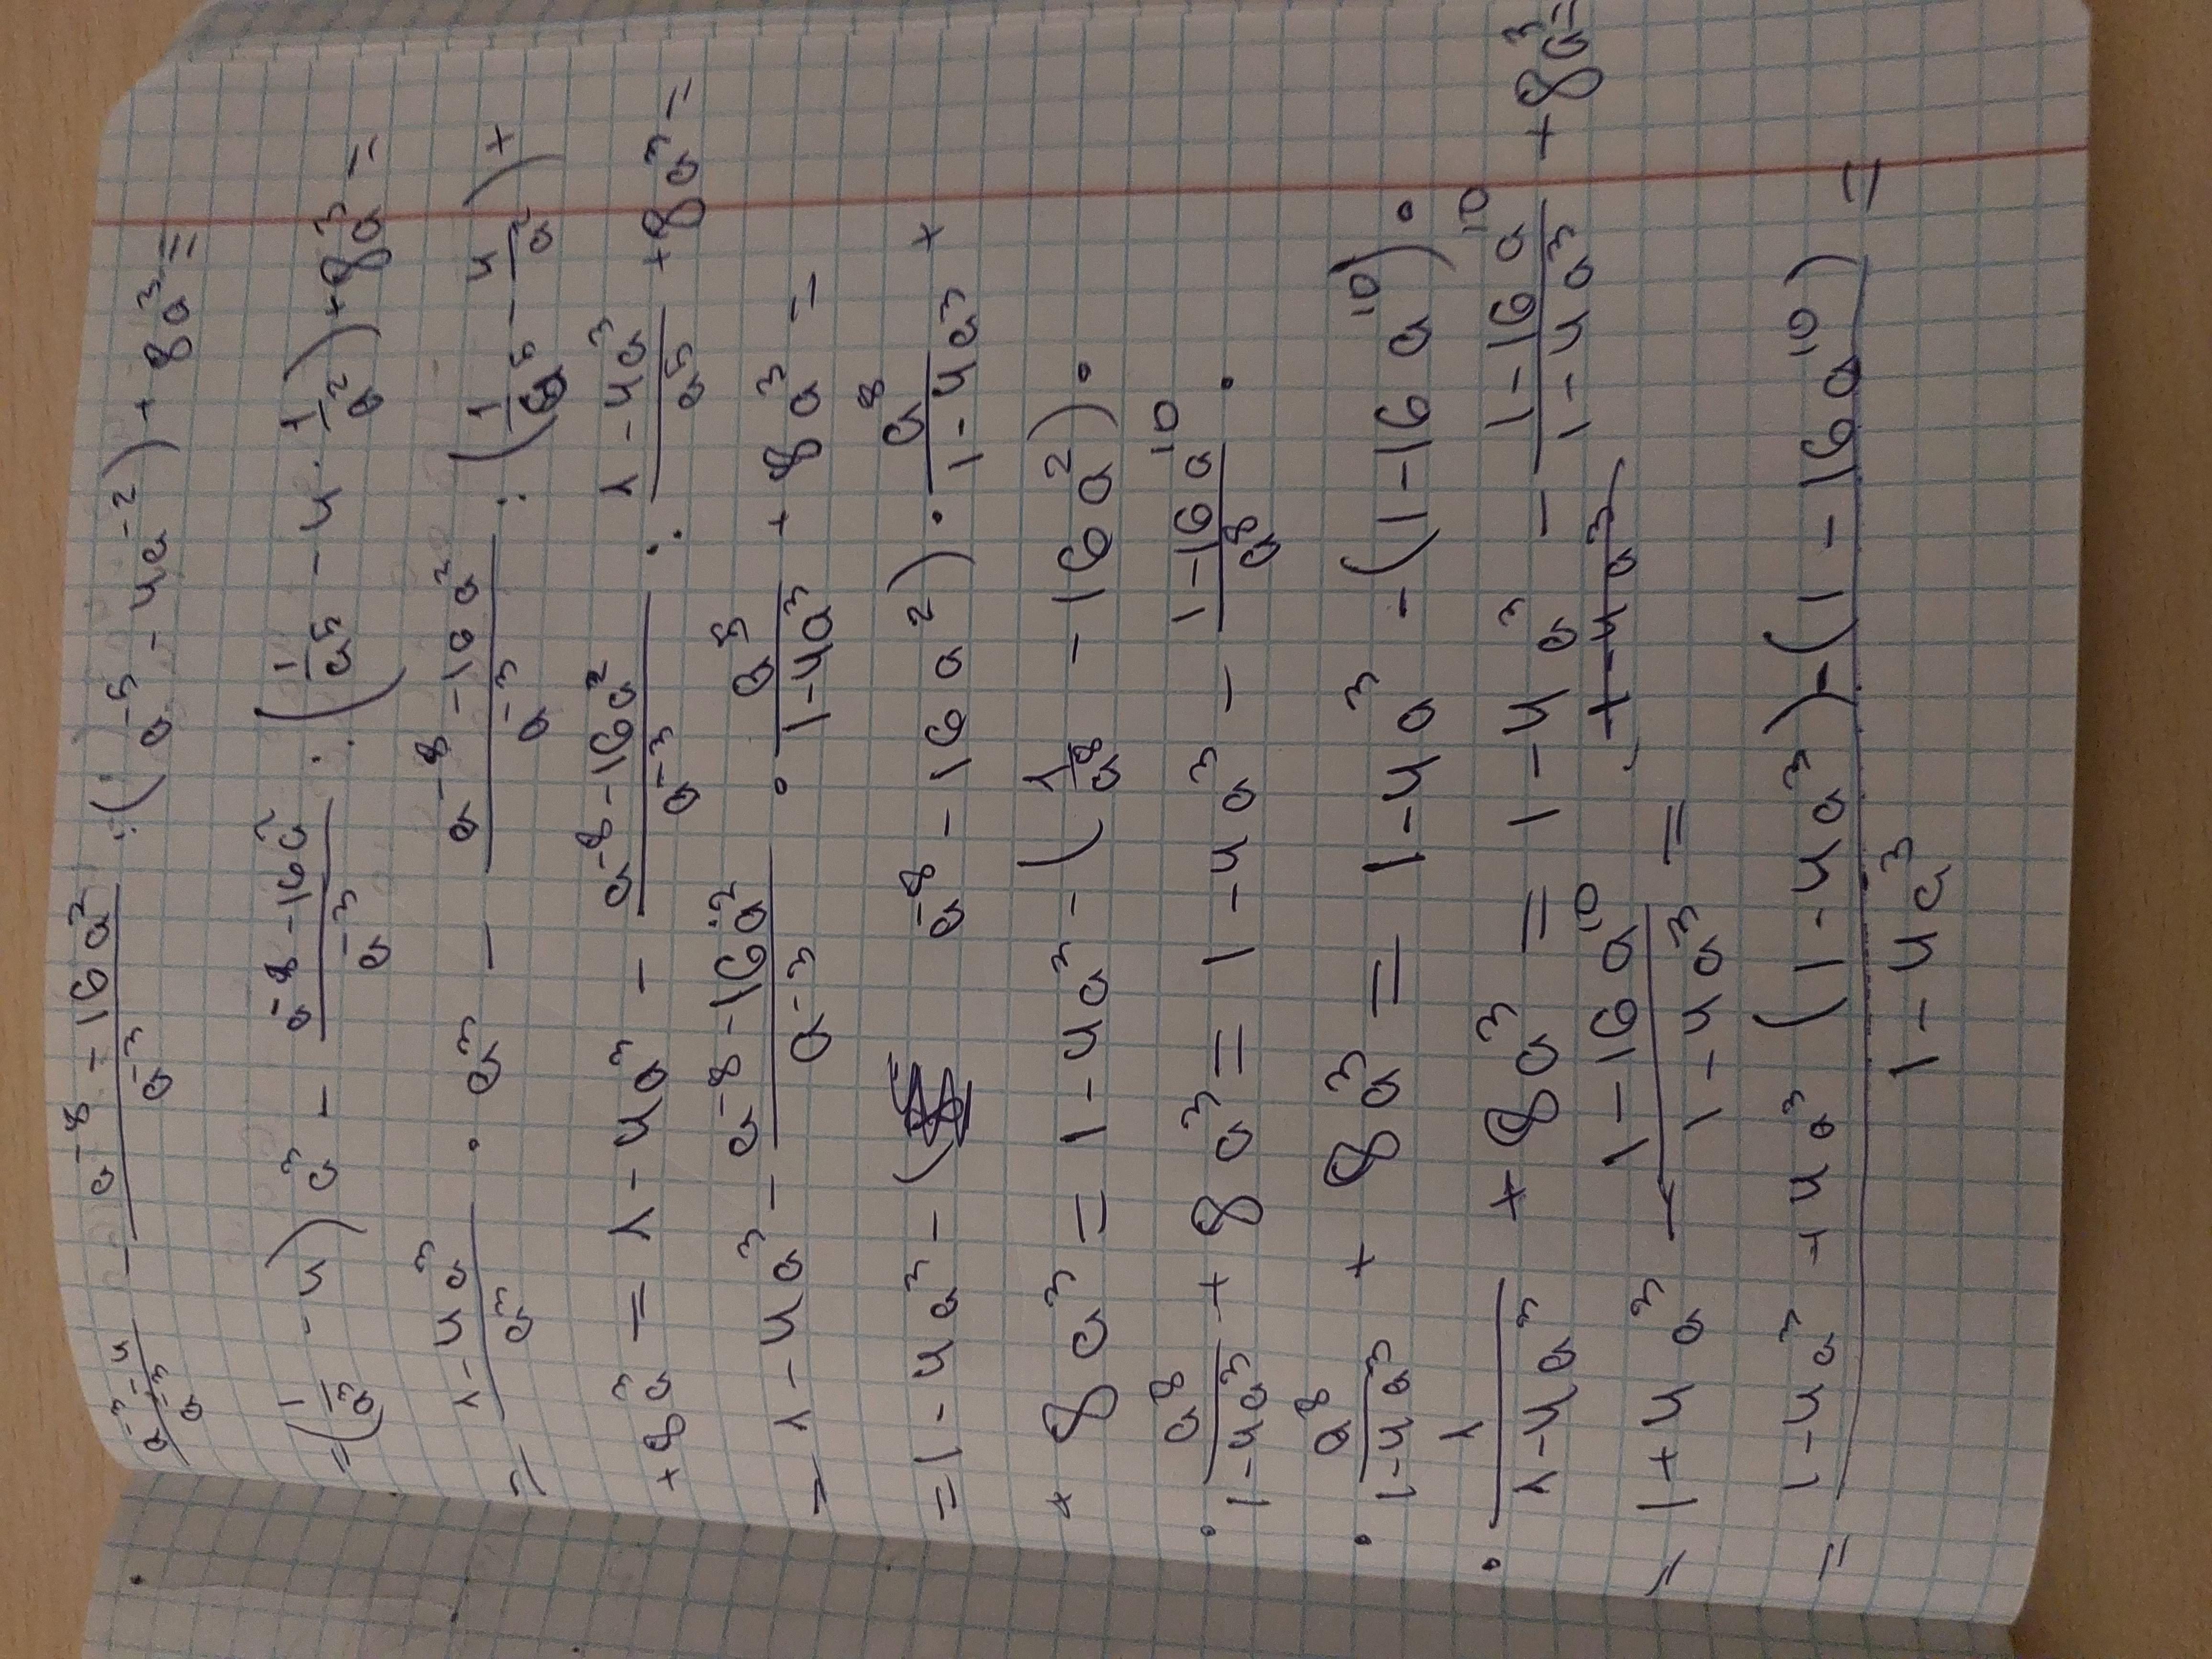 (a^-3 - 4)/a^-3 - (a^-8 - 16a^2)/a^-3 : (a^-5 - 4a^-2) + 8a^3 =
= (1/a^3 - 4) a^3 - (a^-8 - 16a^2)/a^-3 : (1/a^5 - 4 · 1/a^2) + 8a^3 =
= (1 - 4a^3)/a^3 · a^3 - (a^-8 - 16a^2)/a^-3 : (1/a^5 - 4/a^2) +
+ 8a^3 = 1 - 4a^3 - (a^-8 - 16a^2)/a^-3 : (1 - 4a^3)/a^5 + 8a^3 =
= 1 - 4a^3 - (a^-8 - 16a^2)/a^-3 · a^5/(1 - 4a^3) + 8a^3 =
= 1 - 4a^3 - (a^-8 - 16a^2) · a^8/(1 - 4a^3) +
+ 8a^3 = 1 - 4a^3 - (1/a^8 - 16a^2) ·
· a^8/(1 - 4a^3) + 8a^3 = 1 - 4a^3 - (1 - 16a^10)/a^8 ·
· a^8/(1 - 4a^3) + 8a^3 = 1 - 4a^3 - (1 - 16a^10) ·
· 1/(1 - 4a^3) + 8a^3 = 1 - 4a^3 - (1 - 16a^10)/(1 - 4a^3) + 8a^3 =
= 1 + 4a^3 - (1 - 16a^10)/(1 - 4a^3) =
= (1 - 4a^3 + 4a^3 (1 - 4a^3) - (1 - 16a^10))/(1 - 4a^3) =